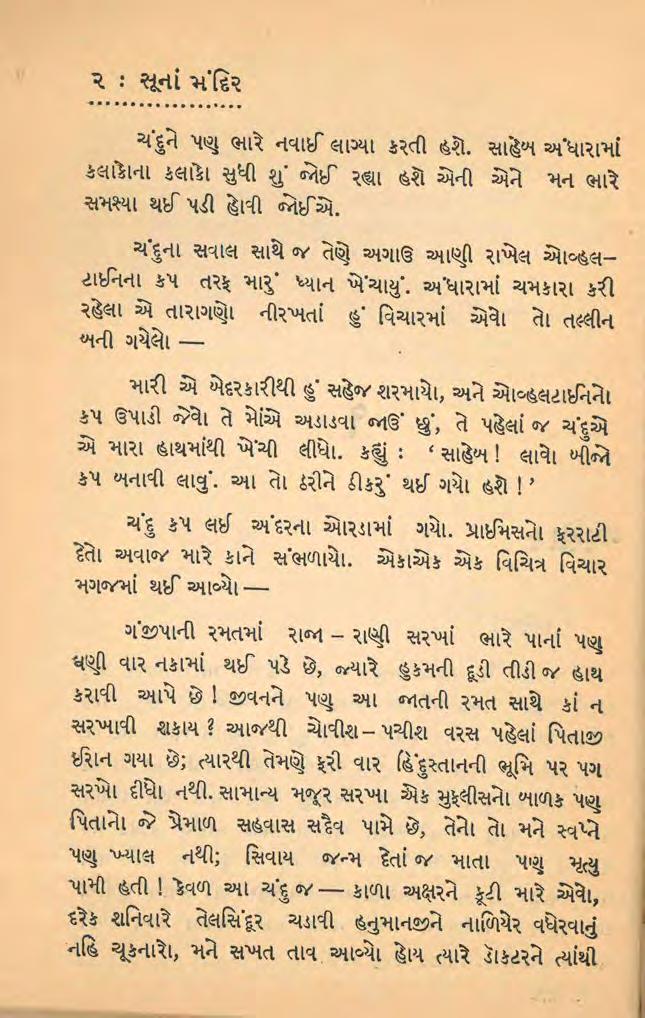 ૨ : સૂનાં મંદિર
ચંદુને પણ ભારે નવાઈ લાગ્યા કરતી હશે. સાહેબ અંધારામાં
કલાકોના કલાકો સુધી શું જોઈ રહ્યા હશે એની એને મન ભારે
સમસ્યા થઈ પડી હોવી જોઈએ.
ચંદુના સવાલ સાથે જ તેણે અગાઉ આણી રાખેલ ઓવ્હલ-
ટાઈનના કપ તરફ મારું ધ્યાન ખેંચાયું. અંધારામાં ચમકારા કરી
રહેલા એ તારાગણો નીરખતાં હું વિચારમાં એવો તો તલ્લીન
બની ગયેલો —
મારી એ બેદરકારીથી હું સહેજ શરમાયો, અને ઓવ્હલટાઈનનો
કપ ઉપાડી જેવો તે મોંએ અડાડવા જાઉં છું, તે પહેલાં જ ચંદુએ
એ મારા હાથમાંથી ખેંચી લીધો. કહ્યું : ‘સાહેબ! લાવો બીજો
કપ બનાવી લાવું. આ તો ઠરીને ઠીકરું થઈ ગયો હશે !’
ચંદુ કપ લઈ અંદરના ઓરડામાં ગયો. પ્રાઈમસનો ફરરાટી
દેતો અવાજ મારે કાને સંભળાયો. એકાએક એક વિચિત્ર વિચાર
મગજમાં થઈ આવ્યો —
ગંજીપાની રમતમાં રાજા – રાણી સરખાં ભારે પાનાં પણ
ઘણી વાર નકામાં થઈ પડે છે, જ્યારે હુકમની દૂડી તીડી જ હાથ
કરાવી આપે છે ! જીવનને પણ આ જાતની રમત સાથે કાં ન
સરખાવી શકાય ? આજથી ચોવીશ – પચીશ વરસ પહેલાં પિતાજી
ઈરાન ગયા છે; ત્યારથી તેમણે ફરી વાર હિંદુસ્તાનની ભૂમિ પર પગ
સરખો દીધો નથી. સામાન્ય મજૂર સરખા એક મુફલીસનો બાળક પણ
પિતાનો જે પ્રેમાળ સહવાસ સદૈવ પામે છે, તેનો તો મને સ્વપ્ને
પણ ખ્યાલ નથી; સિવાય જન્મ દેતાં જ માતા પણ મૃત્યુ
પામી હતી ! કેવળ આ ચંદુ જ — કાળા અક્ષરને કૂટી મારે એવો,
દરેક શનિવારે તેલસિંદૂર ચડાવી હનુમાનજીને નાળિયેર વધેરવાનું
નહિ ચૂકનારો, મને સખત તાવ આવ્યો હોય ત્યારે ડૉકટરને ત્યાંથી